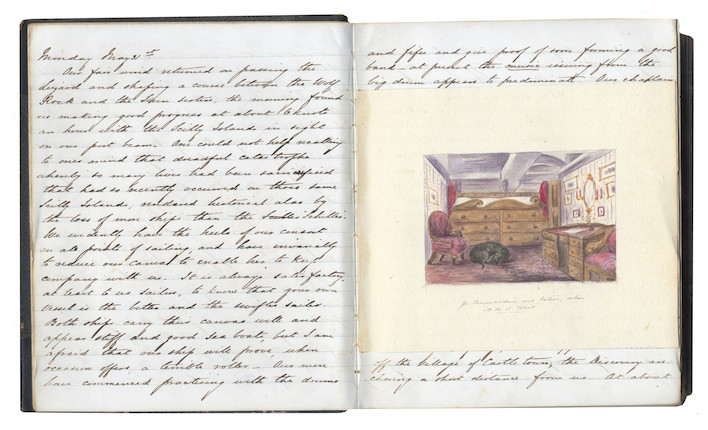 Monday May 31st
Our fair wind returned on passing the
Lizard and shaping a course between the Wolf
Rock and the Seven Stones, the morning found
us making good progress at about 6 knots
an hour with the Scilly Islands in sight
on our port beam. One could not help recalling
to ones mind that dreadful catastrophe
whereby so many lives had been sacrificed
that had so recently occurred on these same
Scilly Islands, rendered historical alas by
the loss of more ships than the Schiller.
We evidently have the heels of our consort
on all points of sailing, and have invariably
to reduce our canvas to enable her to keep
company with us. It is always satisfactory,
at least to us sailors, to know that your own
vessel is the better and the swifter sailer.
Both ships carry their canvas well and
appear stiff and good sea boats, but I am
afraid that our ship will prove, when
occasion offers, a terrible roller — Our men
have commenced practising with the drums
and fifes and give proof of soon forming a good
band — at present the music issuing from the
big drum appears to predominate. Our chaplain
H.M.S. Alert
off the village of Castletown, the Discovery an-
choring a short distance from us. At about